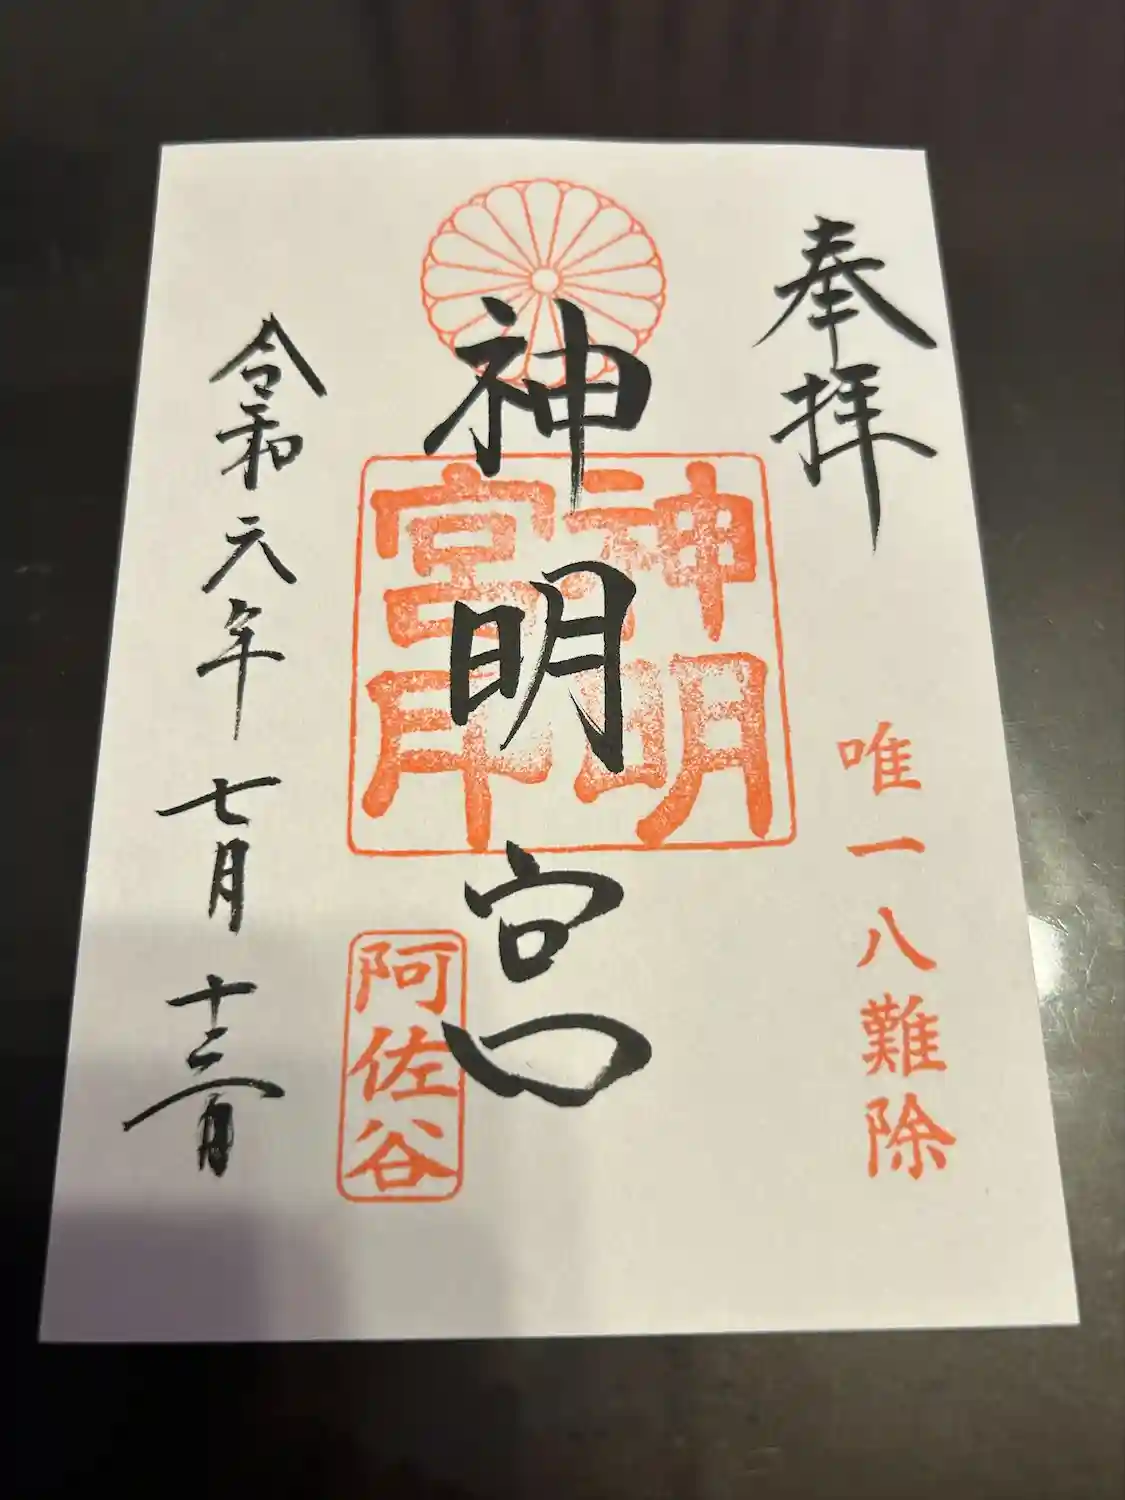 奉拝
唯一八難除
神明宮
神明宮印
阿佐谷
令和六年七月十二日